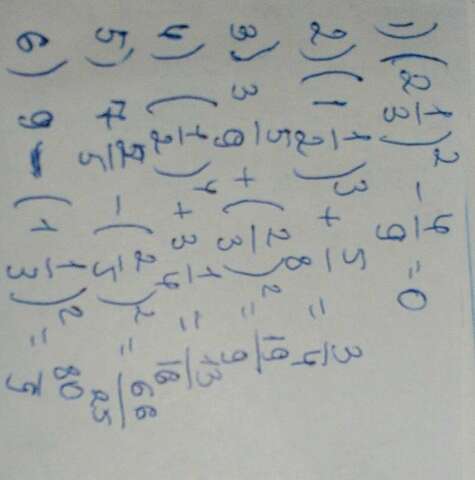 1) (2 1/3)² - 4/9 = 0
2) (1 1/2)³ + 5/8 = 3/4
3) 3 5/9 + (2/3)² = 19/9
4) (1/2)⁴ + 3 1/4 = 13/16
5) 7 2/5 - (2/5)² = 66/25
6) 9 - (1 1/3)² = 80/9